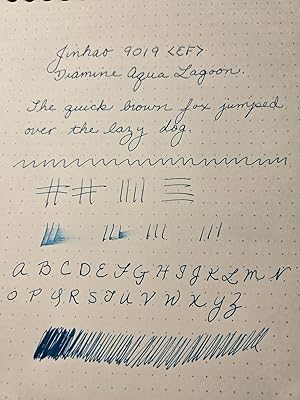 Jinhao 9019 <EF>
Diamine Aqua Lagoon.
The quick brown fox jumped
over the lazy dog.
A B C D E F G H I J K L M N
O P Q R S T U V W X Y Z